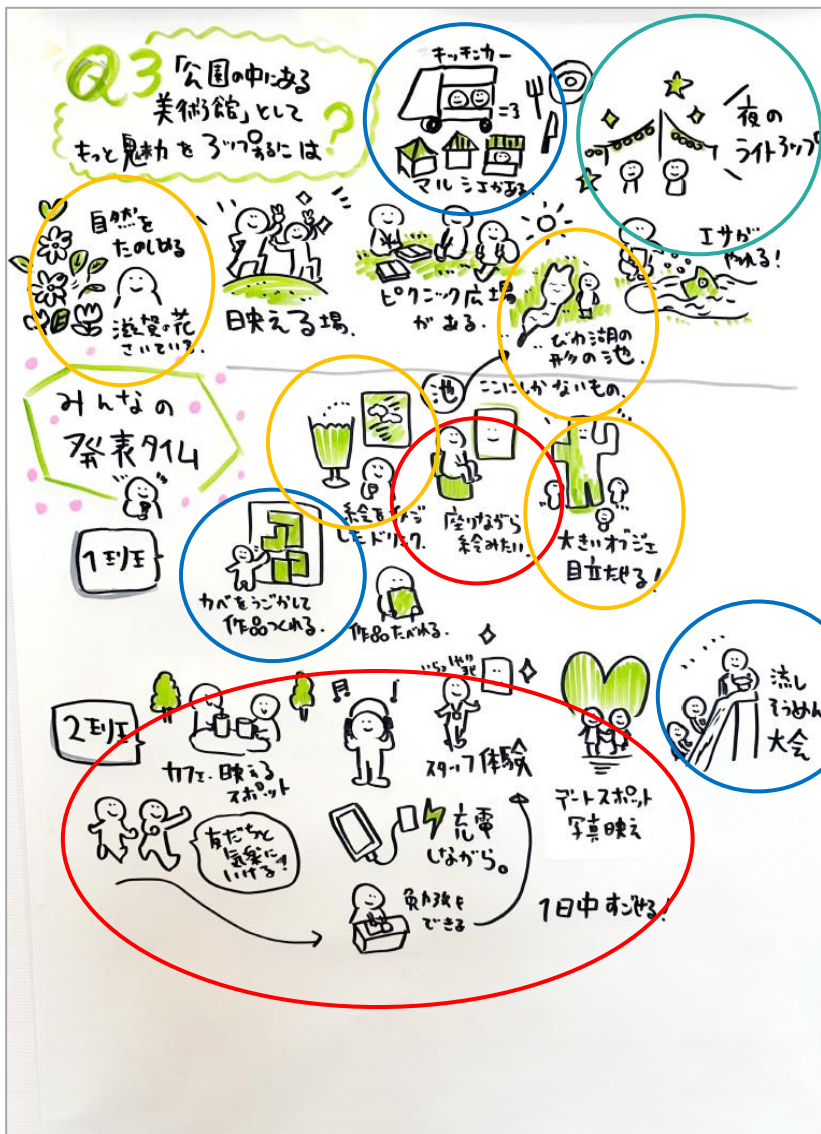 Q3「公園の中にある
美術館」として
もっと魅力をアップするには?
キッチンカー
マルシェがある。
夜の
ライトアップ
自然を
たのしめる
滋賀の花
さいている。
映える場。
ピクニック広場
がある。
びわ湖の
形の池。
エサが
やれる!
池
ここにしかないもの。
みんなの
発表タイム
1班
絵をイメージ
したドリンク。
座りながら
絵みたい。
大きいオブジェ
目立たせる!
カベをうごかして
作品つくれる。
作品たべれる。
2班
カフェ、映える
スポット
いらっしゃいませ
スタッフ体験
デートスポット
写真映え
流し
そうめん
大会
友だちと
気楽に
いける!
充電
しながら。
勉強も
できる
1日中すごせる!